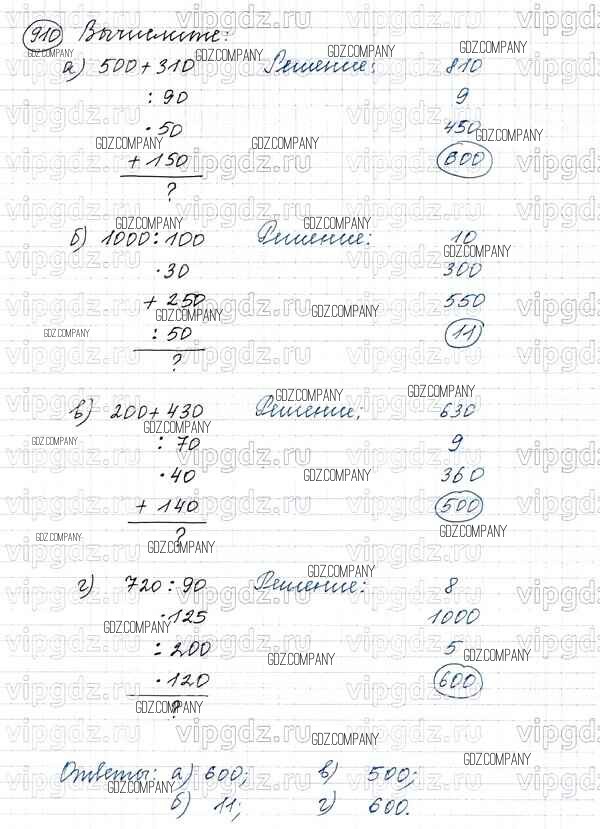 910 Вычислите:
а) 500 + 310 Решение: 810
: 90 9
· 50 450
+ 150 600
?
б) 1000 : 100 Решение: 10
· 30 300
+ 250 550
: 50 11
?
в) 200 + 430 Решение: 630
: 70 9
· 40 360
+ 140 500
?
г) 720 : 90 Решение: 8
· 125 1000
: 200 5
· 120 600
?
Ответы: а) 600; в) 500;
б) 11; г) 600.